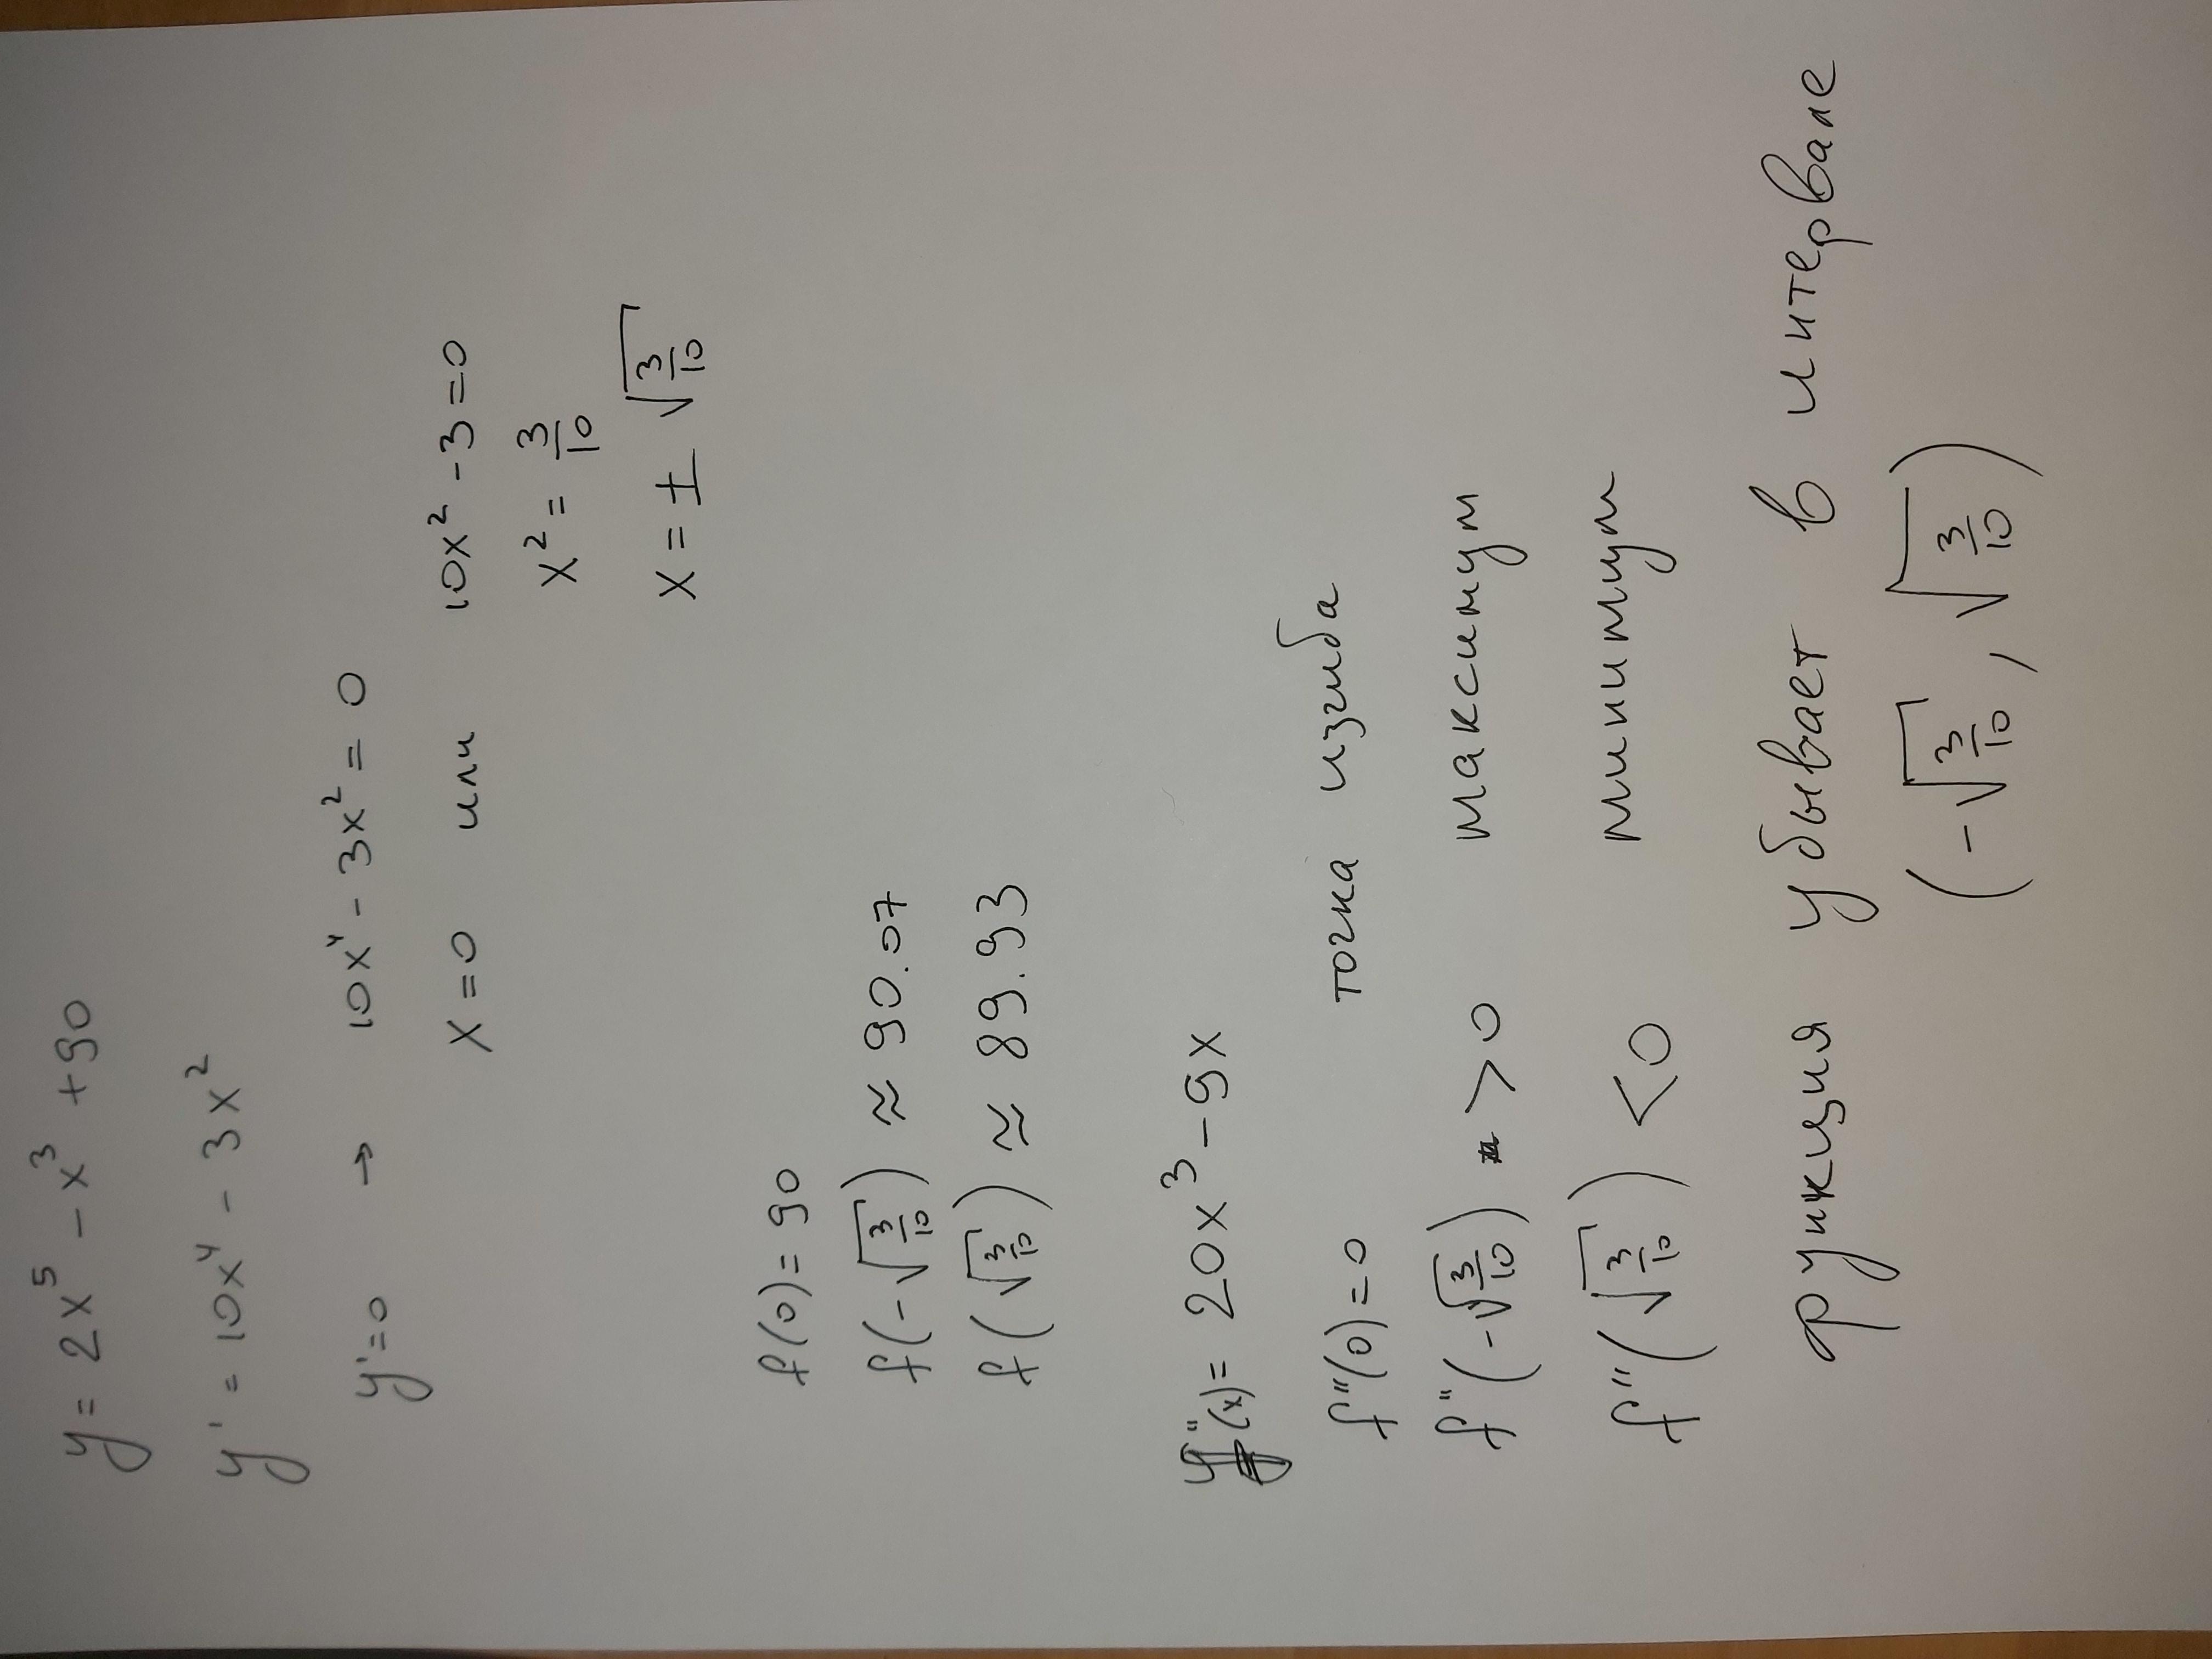 y = 2x⁵ - x³ + 90
y' = 10x⁴ - 3x²
y'=0 → 10x⁴ - 3x² = 0
x=0 или 10x² - 3=0
x² = 3/10
x = ± √(3/10)
f(0) = 90
f(-√(3/10)) ≈ 90.07
f(√(3/10)) ≈ 89.93
y''(x) = 20x³ - 9x
f''(0)=0 точка изгиба
f''(-√(3/10)) > 0 максимум
f''(√(3/10)) < 0 минимум
функция убывает в интервале
(-√(3/10), √(3/10))